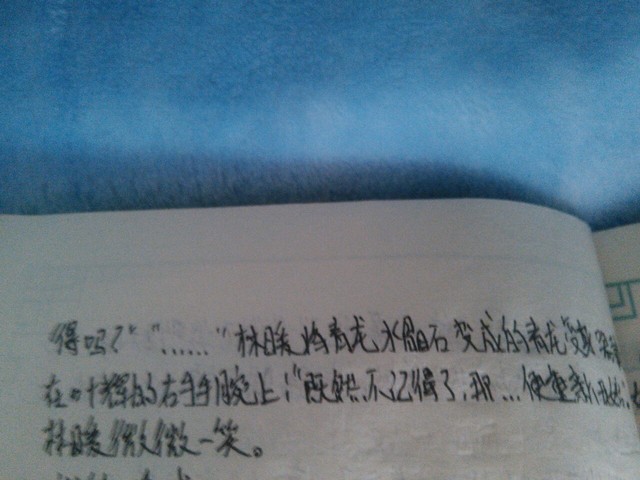 得吗?""……"林暖将青龙水晶石变成的青龙
在叶辉的右手手腕上:"既然不记得了,那…便重新开始,
林暖微微一笑。